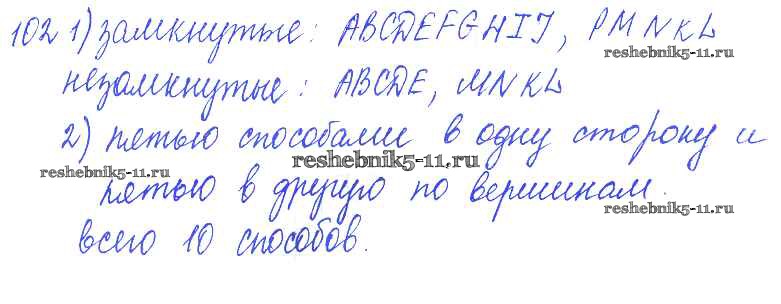 102 1) замкнутые: ABCDEFGHIJ, PMNKL
reshebnik5-11.ru
незамкнутые: ABCDE, MNKL
2) пятью способами в одну сторону и
reshebnik5-11.ru
reshebnik5-11.ru
пятью в другую по вершинам.
reshebnik5-11.ru
всего 10 способов.